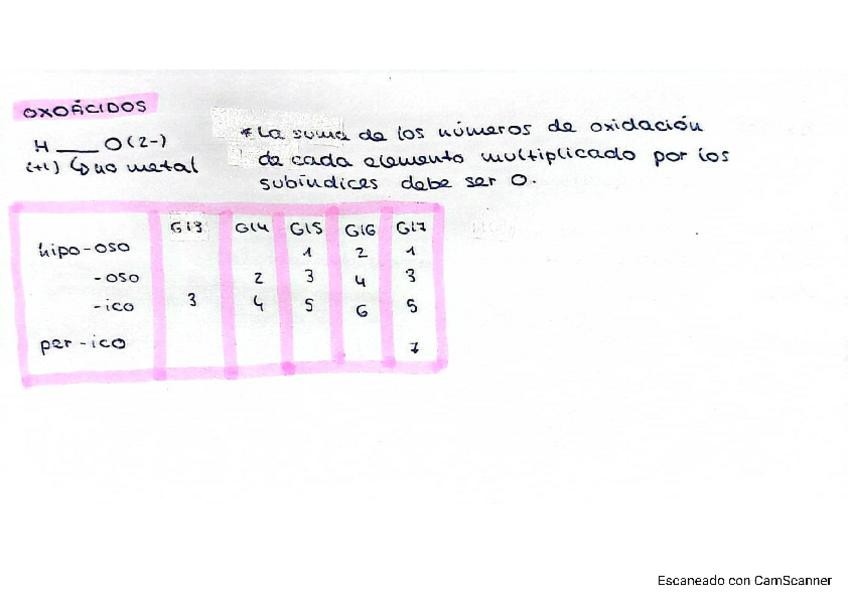 OXOÁCIDOS
H ___ O (2-)
(+1) ↳ no metal
* La suma de los números de oxidación
de cada elemento multiplicado por los
subíndices debe ser 0.
G13 G14 G15 G16 G17
hipo-oso 1 2 1
-oso 2 3 4 3
-ico 3 4 5 6 5
per-ico 7
Escaneado con CamScanner